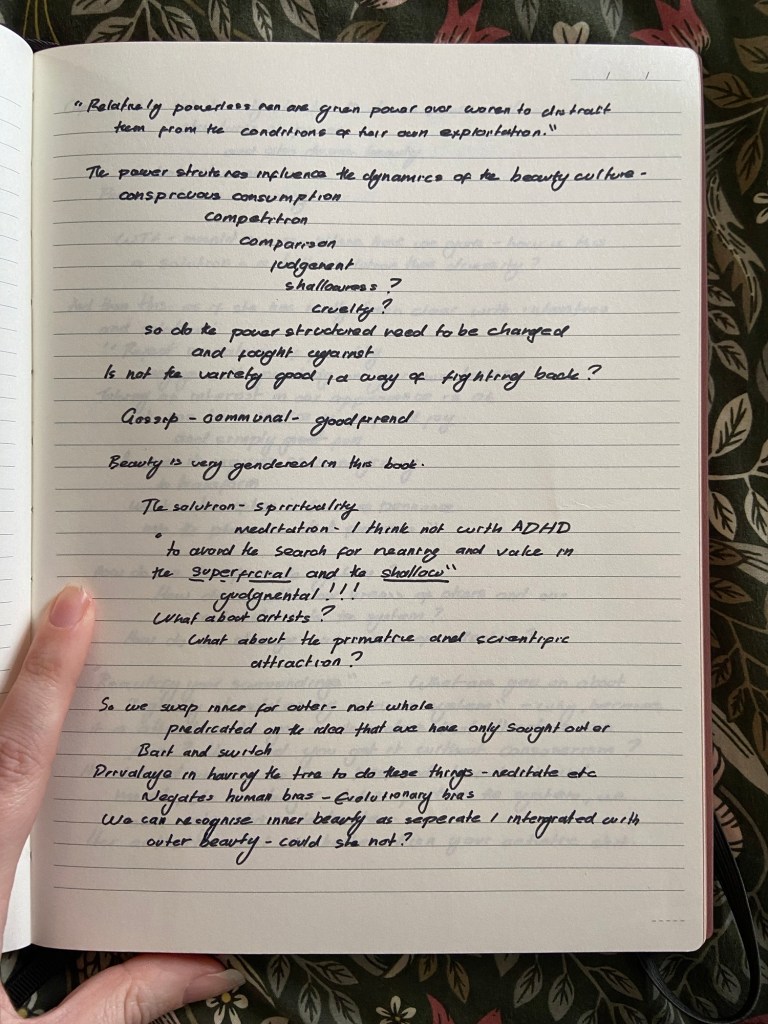 "Relatively powerless men are given power over women to distract
them from the conditions of their own exploitation."
The power structures influence the dynamics of the beauty culture -
conspicuous consumption
competition
comparison
judgement
shallowness?
cruelty?
so do the power structured need to be changed
and fought against
Is not the variety good, a way of fighting back?
Gossip - communal - good friend
Beauty is very gendered in this book.
The solution - spirituality
meditation - I think not with ADHD
to avoid the search for meaning and value in
the superficial and the shallow"
judgmental!!!
What about artists?
What about the primative and scientific
attraction?
So we swap inner for outer - not whole
predicated on the idea that we have only sought outer
Bait and switch
Privalage in having the time to do these things - meditate etc
Negates human bias - Evolutionary bias
We can recognise inner beauty as seperate / intergrated with
outer beauty - could she not?